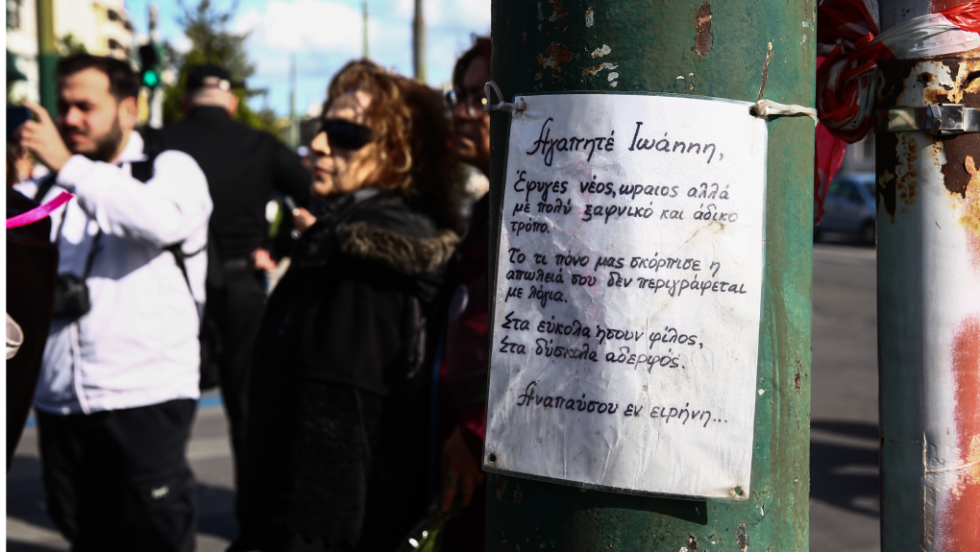 Αγαπητέ Ιωάννη,
Έφυγες νέος, ωραιος αλλά
με πολύ ξαφνικό και άδικο
τρόπο.
Το τι πόνο μας σκόρπισε η
απωλειά σου δεν περιγράφεται
με λόγια.
Στα εύκολα ησουν φίλος,
Στα δύσκολα αδερφός.
Αναπαύσου εν ειρήνη...